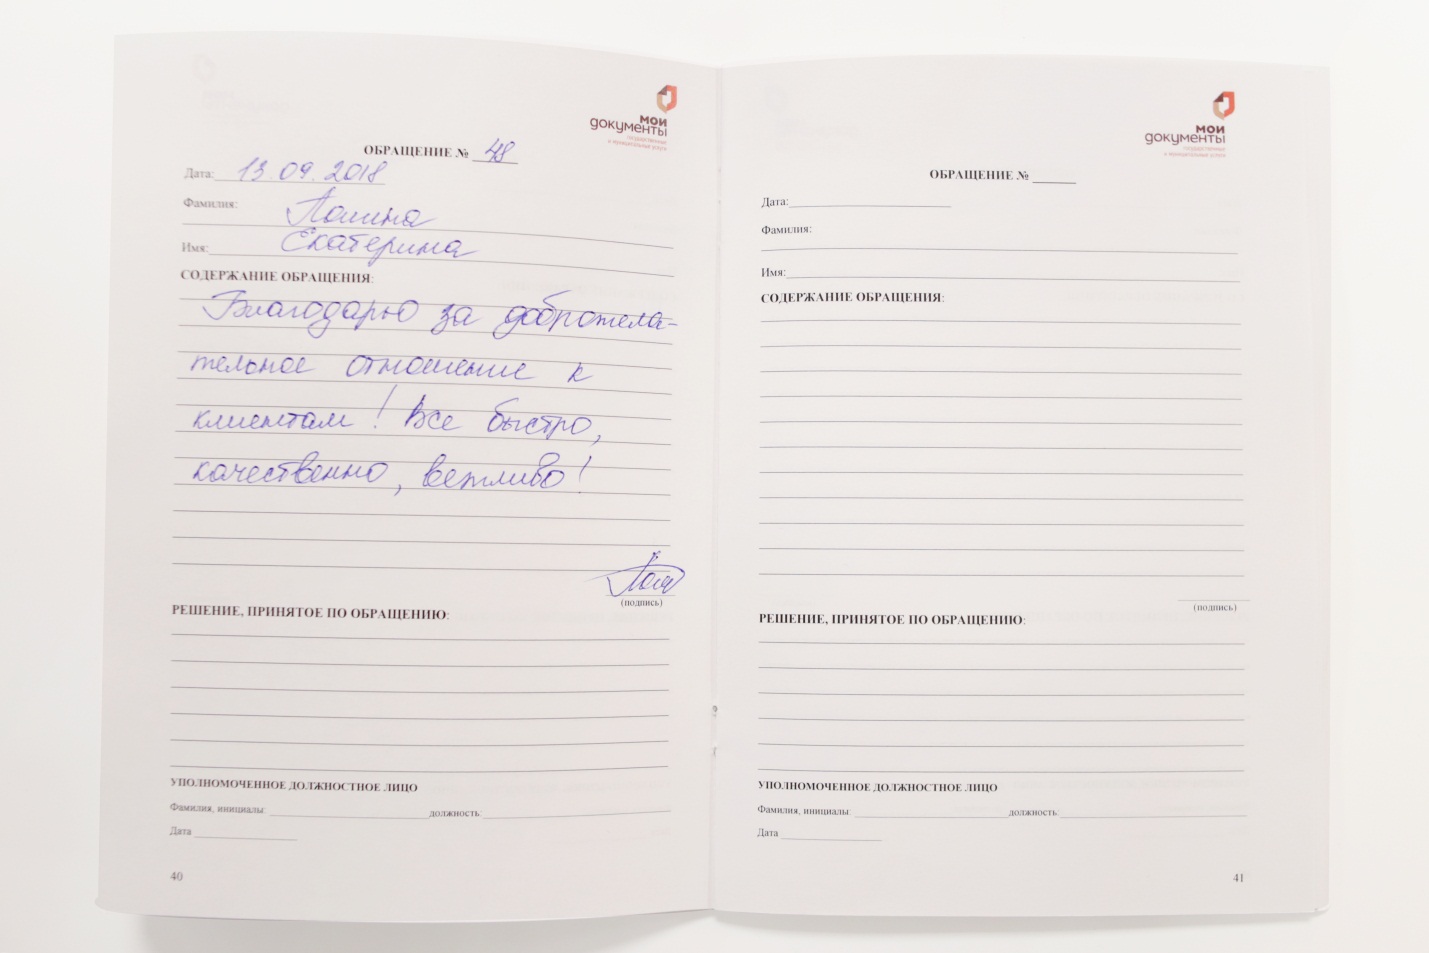 мои
документы
государственные
и муниципальные услуги
ОБРАЩЕНИЕ № 48
Дата: 13.09.2018
Фамилия: Лапина
Имя: Екатерина
СОДЕРЖАНИЕ ОБРАЩЕНИЯ:
Благодарю за доброжела-
тельное отношение к
клиентам! Все быстро,
качественно, вежливо!
(подпись)
РЕШЕНИЕ, ПРИНЯТОЕ ПО ОБРАЩЕНИЮ:
УПОЛНОМОЧЕННОЕ ДОЛЖНОСТНОЕ ЛИЦО
Фамилия, инициалы: должность:
Дата
40
мои
документы
государственные
и муниципальные услуги
ОБРАЩЕНИЕ №
Дата:
Фамилия:
Имя:
СОДЕРЖАНИЕ ОБРАЩЕНИЯ:
(подпись)
РЕШЕНИЕ, ПРИНЯТОЕ ПО ОБРАЩЕНИЮ:
УПОЛНОМОЧЕННОЕ ДОЛЖНОСТНОЕ ЛИЦО
Фамилия, инициалы: должность:
Дата
41